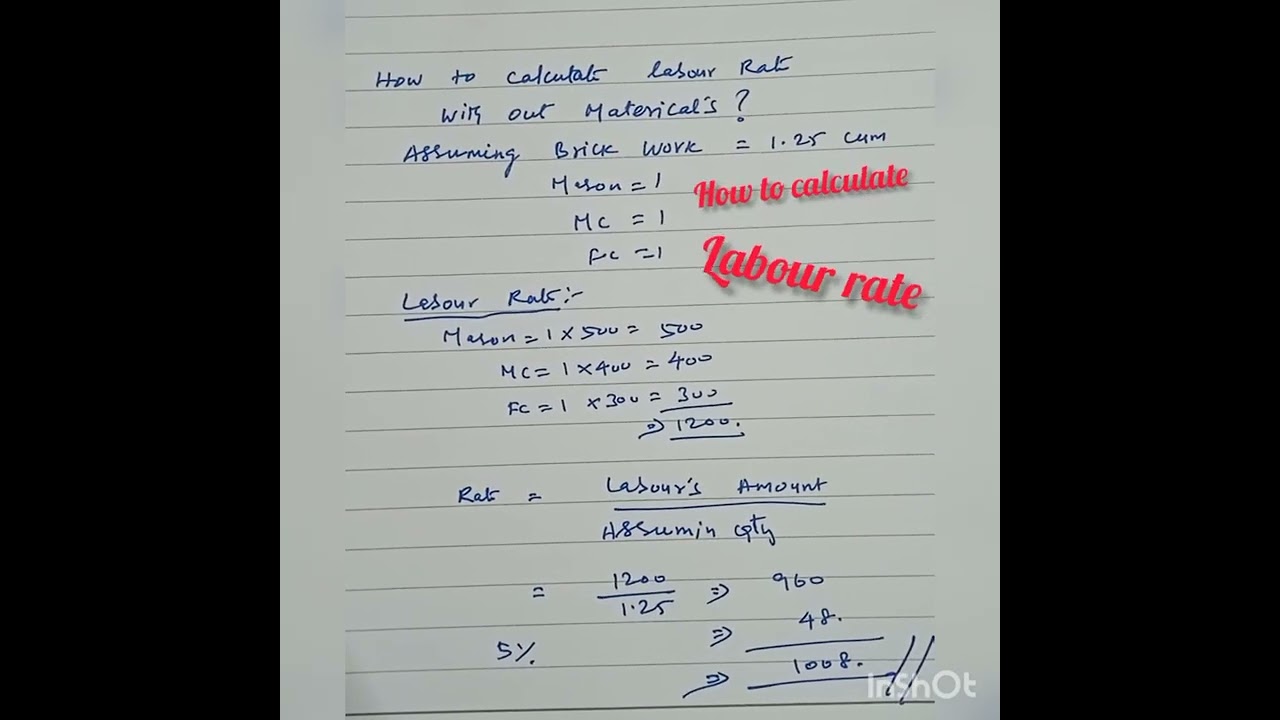 How to calculate labour Rate
With out Materical's?
Assuming Brick Work = 1.25 cum
Mason = 1
MC = 1
FC = 1
How to calculate
Labour rate
Labour Rate:-
Mason = 1 x 500 = 500
MC = 1 x 400 = 400
FC = 1 x 300 = 300
⇒ 1200.
Rate = Labour's Amount
Assumin qty
= 1200 ⇒ 960
1.25
5% ⇒ 48.
⇒ 1008.
InShOt